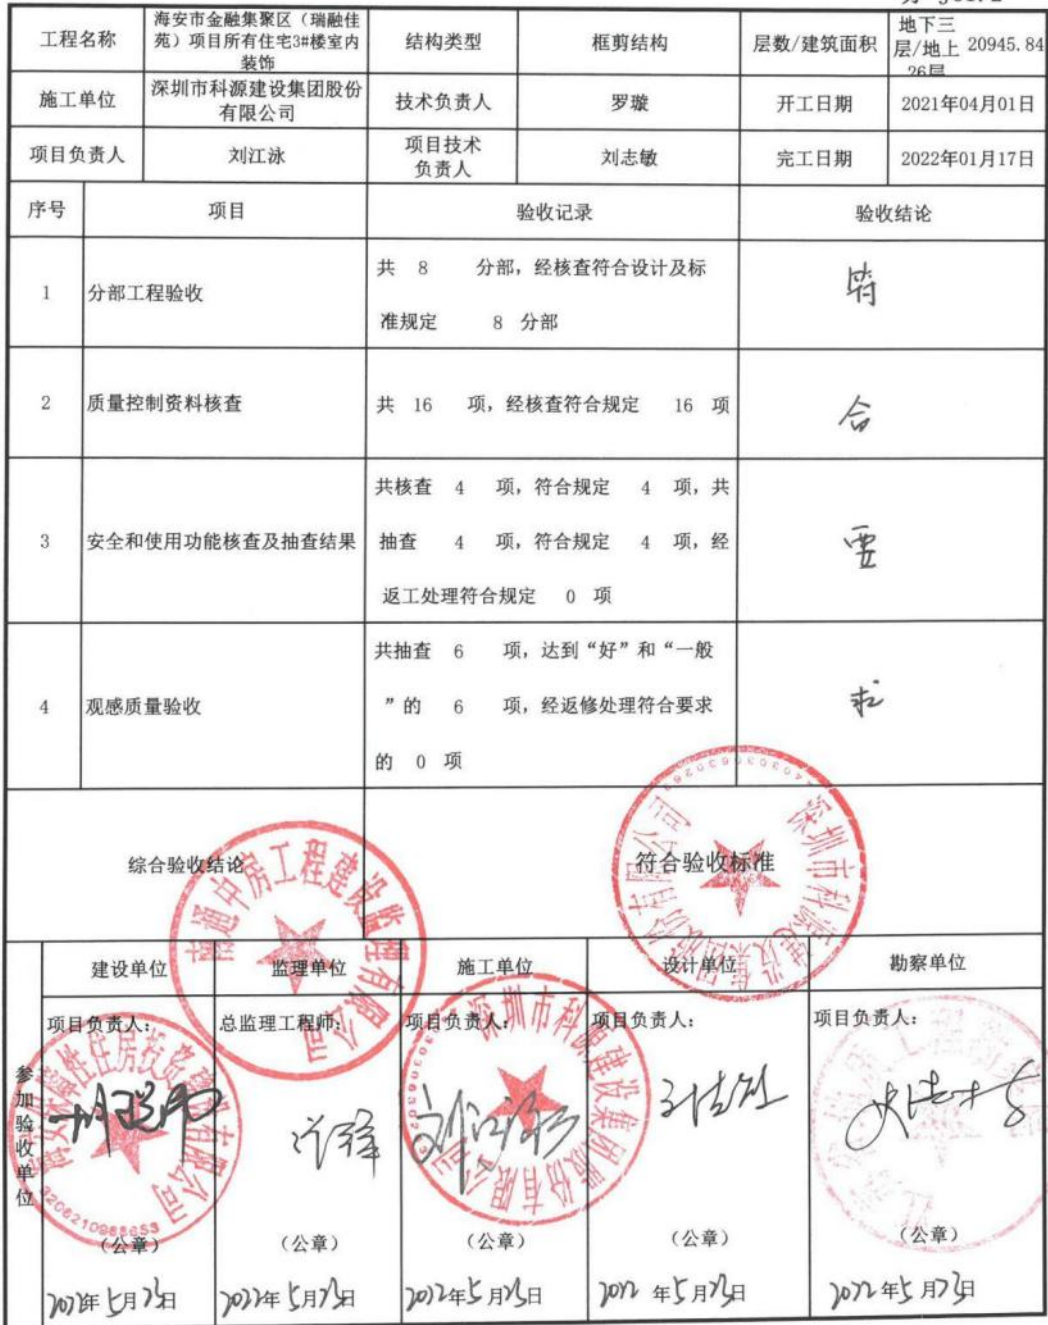 工程名称
海安市金融集聚区（瑞融佳
苑）项目所有住宅3#楼室内
装饰
结构类型
框剪结构
层数/建筑面积
地下三
层/地上
26层
20945.84
施工单位
深圳市科源建设集团股份
有限公司
技术负责人
罗璇
开工日期
2021年04月01日
项目负责人
刘江泳
项目技术
负责人
刘志敏
完工日期
2022年01月17日
序号
项目
验收记录
验收结论
1
分部工程验收
共 8 分部，经核查符合设计及标
准规定 8 分部
2
质量控制资料核查
共 16 项，经核查符合规定 16 项
合
3
安全和使用功能核查及抽查结果
共核查 4 项，符合规定 4 项，共
抽查 4 项，符合规定 4 项，经
返工处理符合规定 0 项
要
4
观感质量验收
共抽查 6 项，达到“好”和“一般
”的 6 项，经返修处理符合要求
的 0 项
求
综合验收结论
符合验收标准
南通中房工程建设监理有限公司
深圳市科源建设集团股份有限公司
参加验收单位
建设单位
监理单位
施工单位
设计单位
勘察单位
项目负责人：
总监理工程师：
项目负责人：
项目负责人：
项目负责人：
深圳市科源建设集团股份有限公司
刘江泳
3206210988653
（公章）
（公章）
（公章）
（公章）
（公章）
2022年5月23日
2022年5月23日
2022年5月23日
2022年5月23日
2022年5月23日